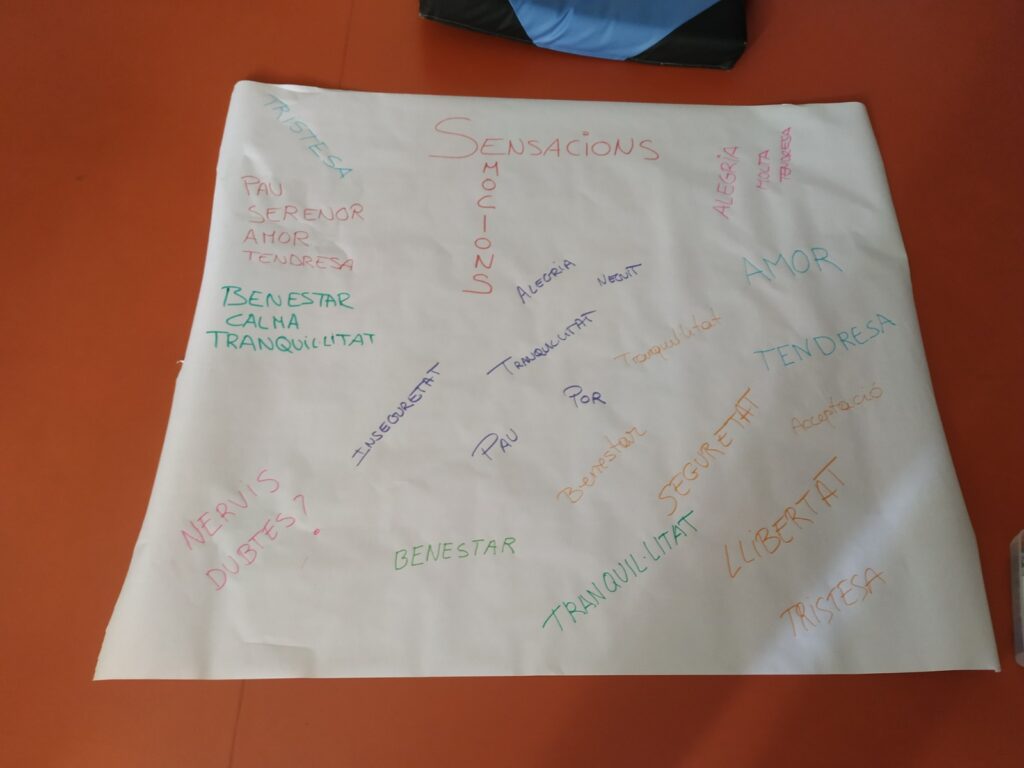 TRISTESA
SENSACIONS
MOCIONS
ALEGRIA
MOLTA
TENDRESA
PAU
SERENOR
AMOR
TENDRESA
BENESTAR
CALMA
TRANQUILLITAT
ALEGRIA
NEGUIT
AMOR
TRANQUILLITAT
Tranquilitat
TENDRESA
INSEGURETAT
PAU
POR
Bienestar
SEGURETAT
Acceptació
NERVIS
DUBTES?
BENESTAR
TRANQUILLITAT
LLIBERTAT
TRISTESA